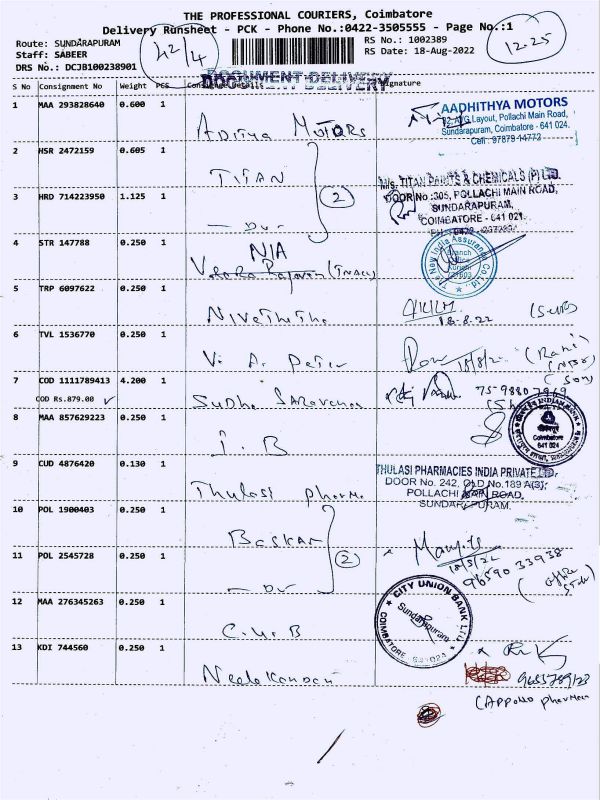 THE PROFESSIONAL COURIERS, Coimbatore
Delivery Runsheet - PCK - Phone No.:0422-3505555 - Page No.:1
Route: SUNDARAPURAM
Staff: SABEER
DRS No.: DCJB100238901
42/4
RS No.: 1002389
RS Date: 18-Aug-2022
12.25
DOCUMENT DELIVERY
DOCUMENT DELIVERY
S No Consignment No Weight PCS Signature
1 MAA 293828640 0.600 1
Aditya Motors
AADHITHYA MOTORS
Layout, Pollachi Main Road,
Sundarapuram, Coimbatore - 641 024.
Cell : 97879 14772
2 HSR 2472159 0.605 1
TITAN
(2)
M/s. TITAN PAINTS & CHEMICALS (P) LTD.
DOOR No :305, POLLACHI MAIN ROAD,
SUNDARAPURAM,
COIMBATORE - 641 021.
3 HRD 714223950 1.125 1
- Do -
4 STR 147788 0.250 1
N/A
The New India Assurance Co. Ltd.
5 TRP 6097622 0.250 1
Nivethitha
18.8.22
6 TVL 1536770 0.250 1
Vi A. Peter
18/8/22
(Rani)
(Son)
7 COD 1111789413 4.200 1
COD Rs.879.00 ✓
Sudha Saravanan
8 MAA 857629223 0.250 1
I. B
INDIAN BANK
Coimbatore
641 024
9 CUD 4876420 0.130 1
Thulasi pharma
THULASI PHARMACIES INDIA PRIVATE LTD.
DOOR No. 242, OLD No.189 A(3),
POLLACHI MAIN ROAD,
SUNDARAPURAM.
10 POL 1900403 0.250 1
Baskar
(2)
11 POL 2545728 0.250 1
- Do -
96590 33938
12 MAA 276345263 0.250 1
C.U.B
CITY UNION BANK LTD.
Sundarapuram
COIMBATORE - 641 024
13 KDI 744560 0.250 1
Neelakandan
(Appollo pharma